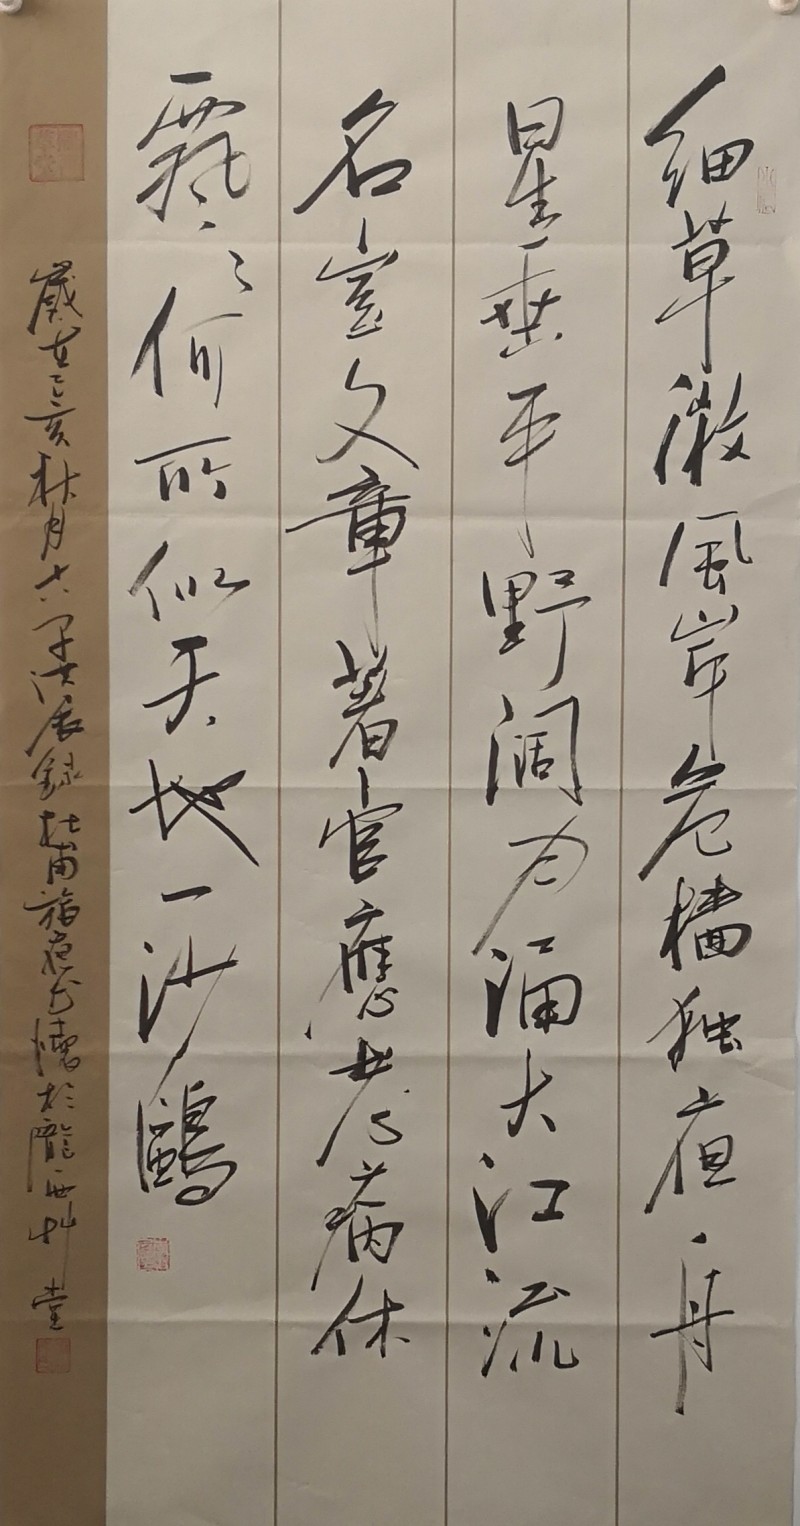 细草微風岸危樯独夜舟
星垂平野阔月涌大江流
名豈文章著官應老病休
飄々何所似天地一沙鷗
歲在己亥秋月錄杜甫旅夜书懷於隴西艸堂